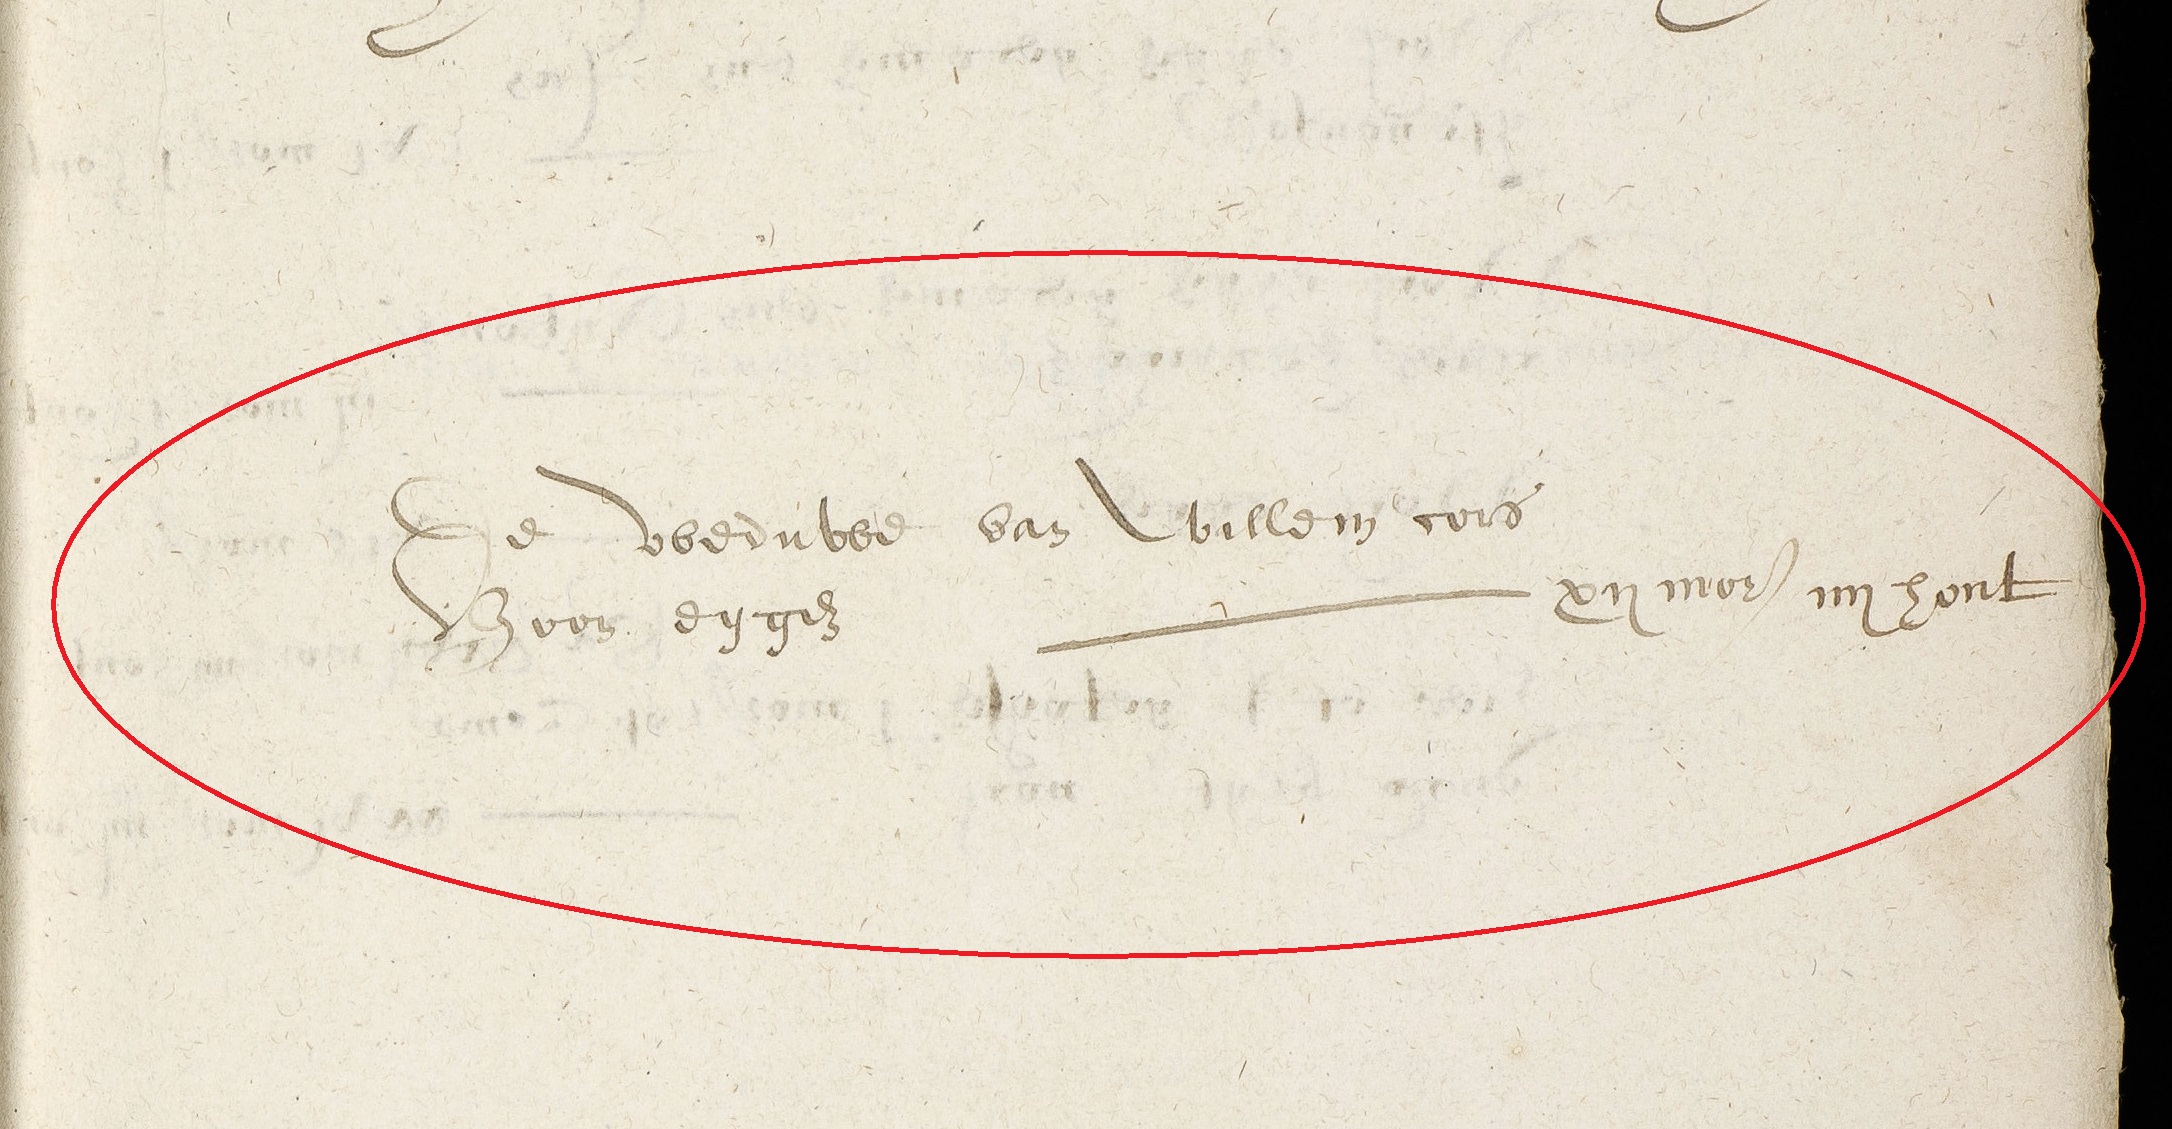 De weduwe van Willem cors
Voor eygen xij mor iiij hont